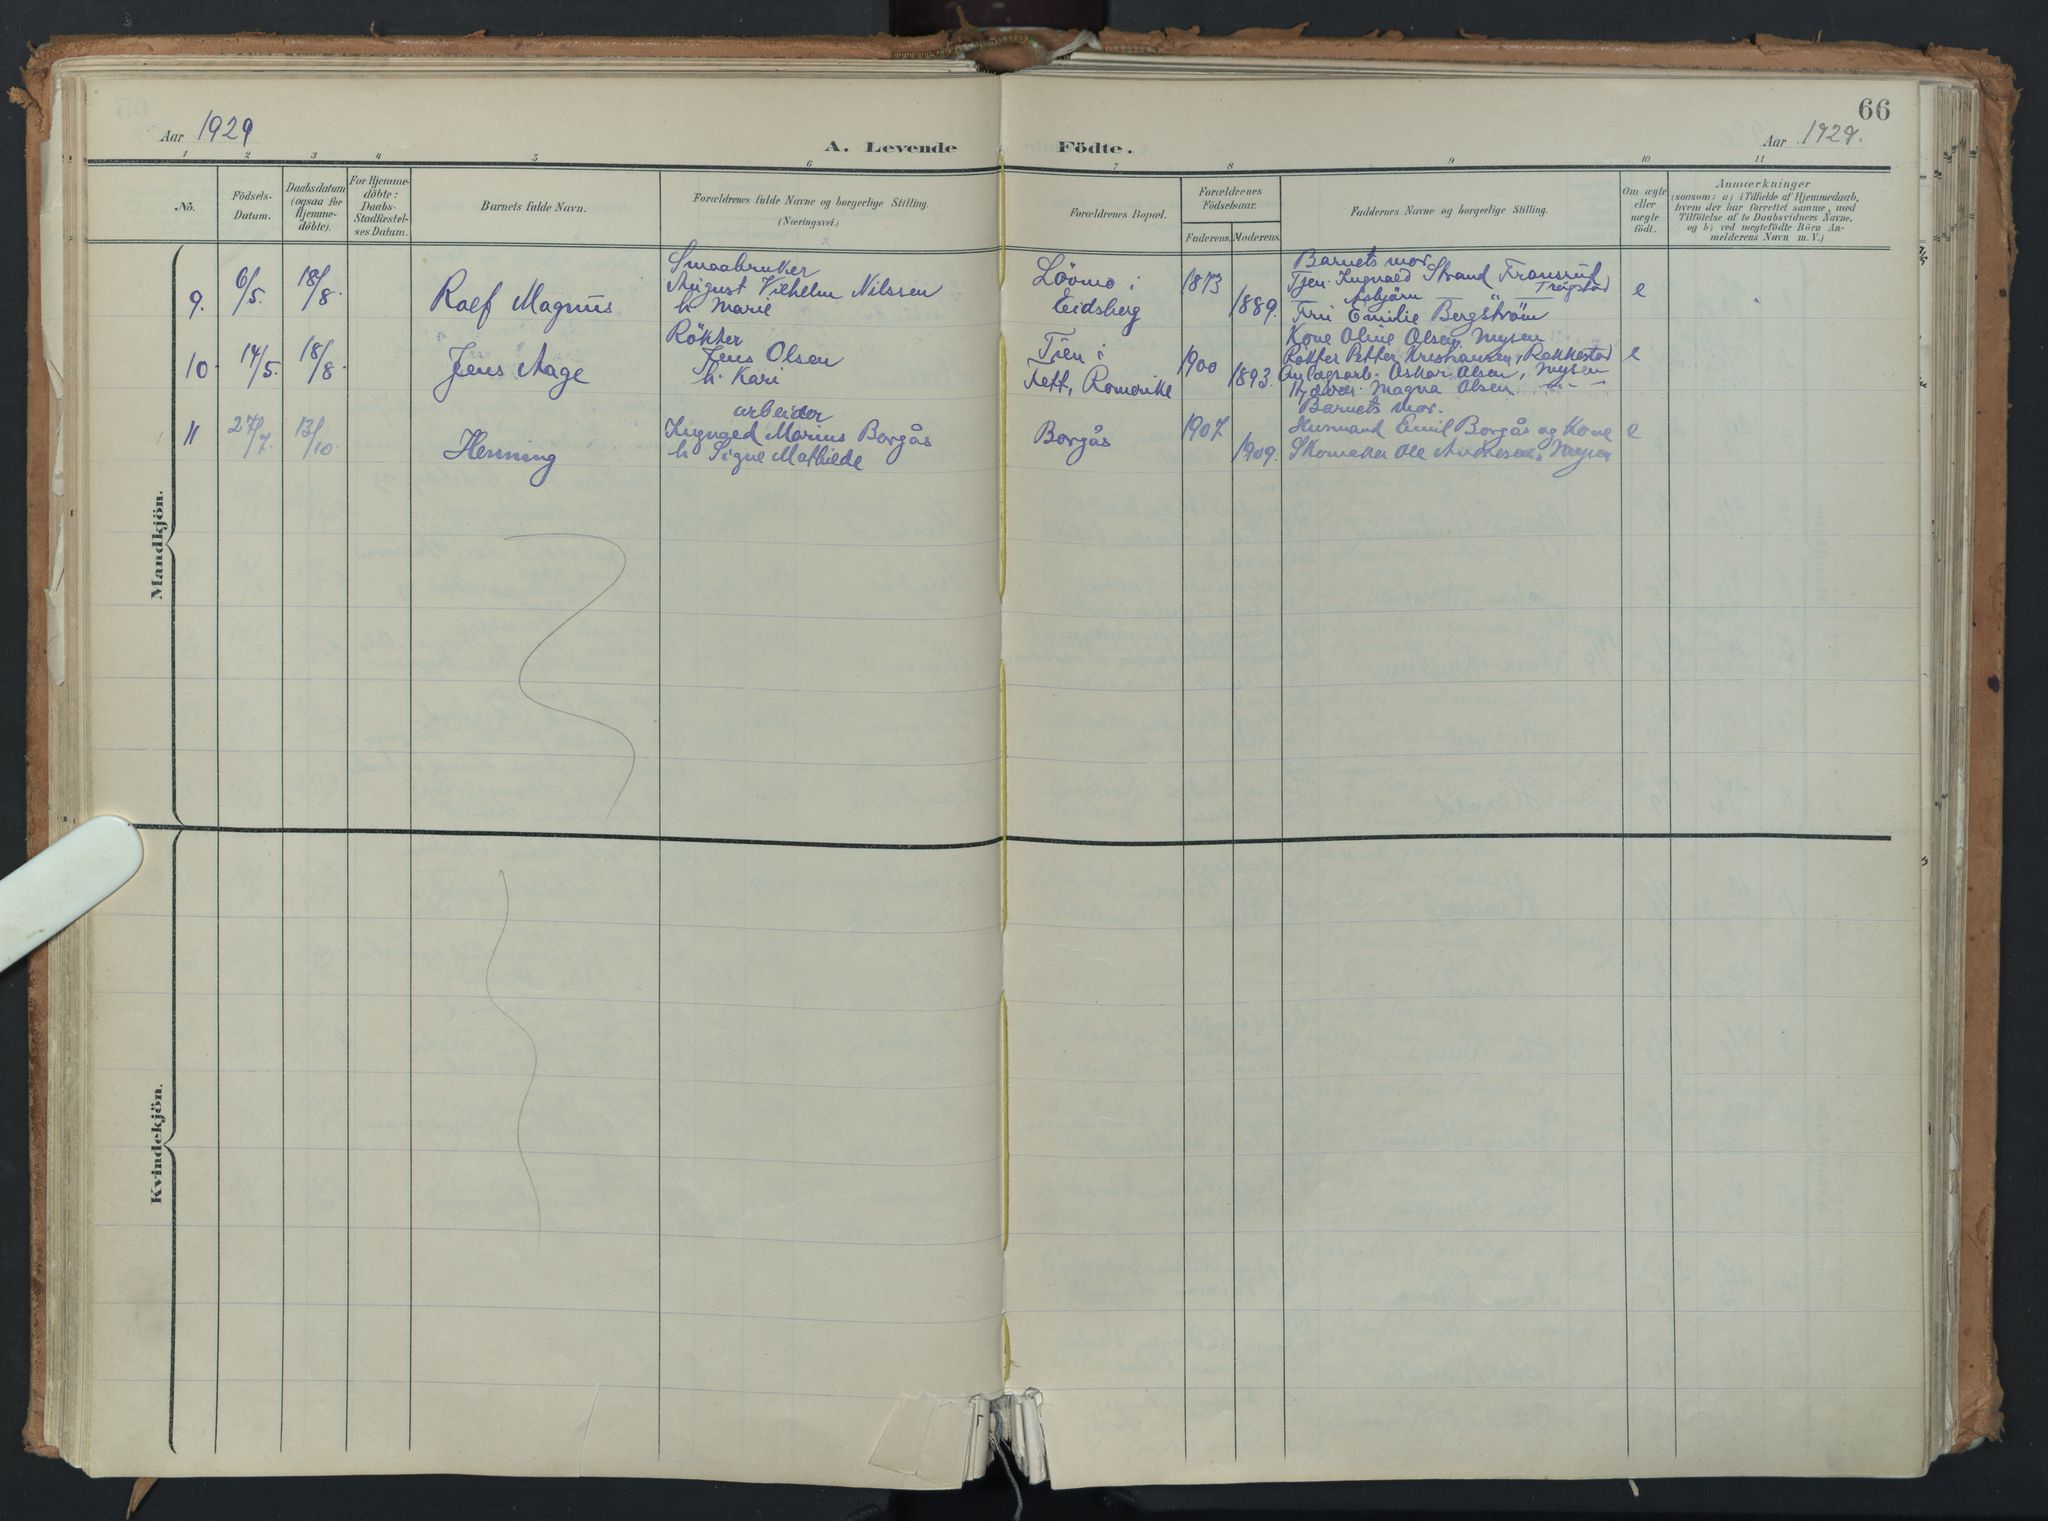 66
Aar 1929
A. Levende Födte.
Aar 1929.
1 2 3 4 5 6 7 8 9 10 11
No.
Födsels-
Datum.
Daabsdatum
(ogsaa for
Hjemme-
döbte).
For Hjemme-
döbte:
Daabs-
Stadfæstel-
ses Datum.
Barnets fulde Navn.
Forældrenes fulde Navne og borgerlige Stilling.
(Næringsvei.)
Forældrenes Bopæl.
Forældrenes
Födselsaar.
Faderens. Moderens.
Faddernes Navne og borgerlige Stilling.
Om ægte
eller
uægte
födt.
Anmærkninger
(saasom: a) i Tilfælde af Hjemmedaab,
hvem der har forrettet samme, med
Tilföielse af to Daabsvidners Navne,
og b) ved uægtefödte Börn An-
melderens Navn m. V.)
Mandkjön.
9. 6/5. 18/8.
Rolf Magnus
Smaabruker
August Vilhelm Nilssen
h. Marie
Lövmo i
Eidsberg
1873
1889.
Barnets mor.
Tjen. Ingvald Strand Fransrud
Asbjörn Trögstad
Fru Emilie Bergström
e
10. 14/5. 18/8.
Jens Aage
Rökter
Jens Olsen
h. Kari
Tien i
Fett, Romerike
1900
1893.
Kone Oline Olsen, Mysen
Rökter Petter Kristiansen, Rakkestad
Anlægsarb. Oskar Olsen, Mysen
Magna Olsen
e
11 27/7. 13/10.
Henning
arbeider
Ingvald Marius Borgås
h. Signe Mathilde
Borgås
1907
1909.
Barnets mor.
Husmand Emil Borgås og Kone
Skomaker Ole Andresen, Mysen
e
Kvindekjön.